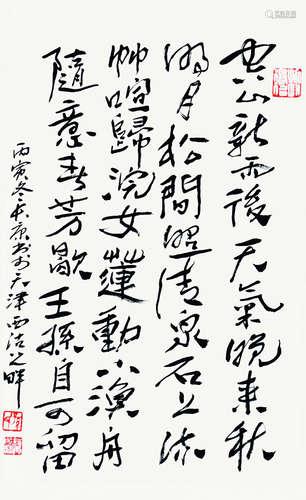 空山新雨後天氣晚來秋
明月松間照清泉石上流
竹喧歸浣女蓮動下漁舟
隨意春芳歇王孫自可留
丙寅冬書於天津西沽之畔